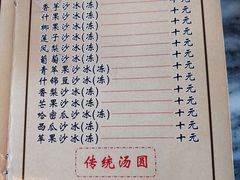 香芋沙冰(冻) 十元
什果沙冰(冻) 十元
椰果沙冰(冻) 十元
莲子沙冰(冻) 十元
凤梨沙冰(冻) 十元
葡萄沙冰(冻) 十元
青苹果沙冰(冻) 十元
什锦豆沙冰(冻) 十元
香梨沙冰(冻) 十元
芒果沙冰(冻) 十元
哈密瓜沙冰(冻) 十元
西瓜沙冰(冻) 十元
苹果沙冰(冻) 十元
传统汤圆